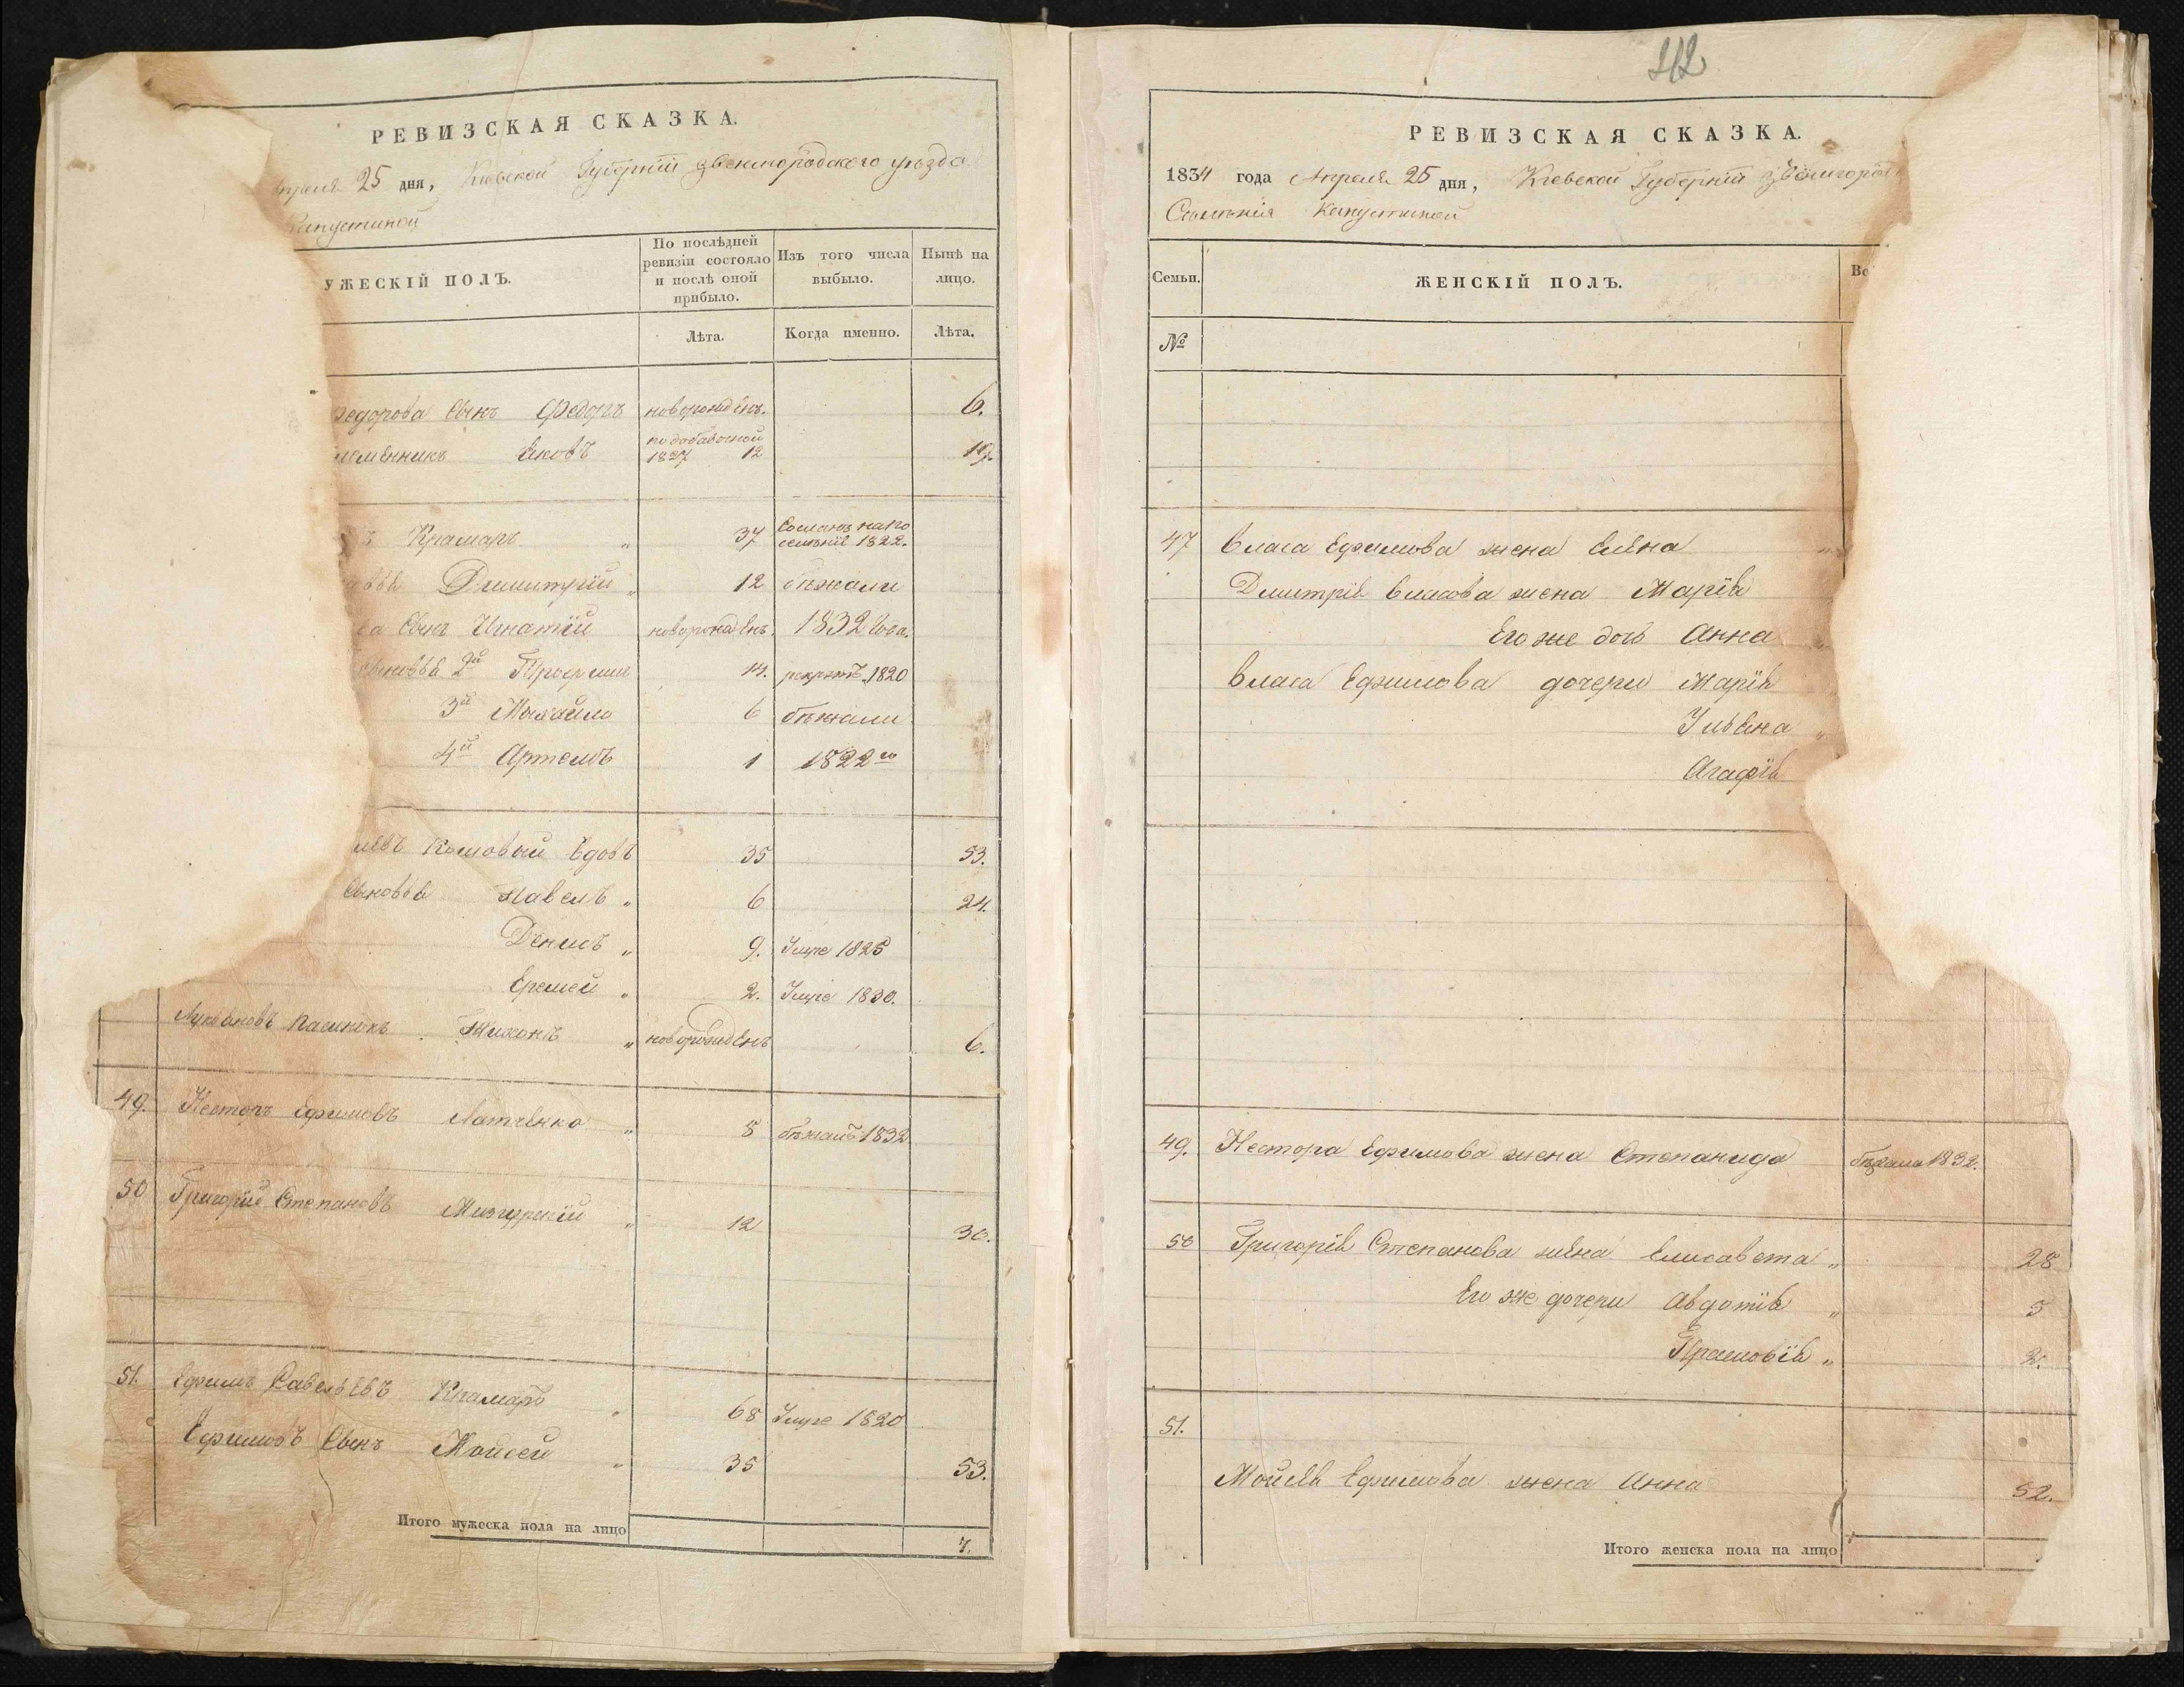 РЕВИЗСКАЯ СКАЗКА.
25 дня, Киевской Губерніи Звенигородского уѣзда
Капустиной
УЖЕСКІЙ ПОЛЪ.
По послѣдней ревизіи состояло и послѣ оной прибыло.
Изъ того числа выбыло.
Нынѣ на лицо.
Лѣта.
Когда именно.
Лѣта.
Федорова Сынъ Федоръ новорожденъ. 6.
племенникъ Яковъ по добавочной 1827 12 19.
Крамаръ " 37 Сосланъ на по селеніе 1822.
Димитрій " 12 бѣжали
Сынъ Игнатій новорожденъ, 1832 Года.
Сыновья 2й Трофим 14. рекрутъ 1820
3й Михайло 6 бѣжали
4й Артемъ 1 1822го
Кошовый Вдовъ 35 53.
Сыновья Павелъ " 6 24.
Денисъ " 9. Умре 1825
Еремей " 2. Умре 1830.
Лукьяновъ пасынокъ Тихонъ " новорожденъ 6.
49. Несторъ Ефимовъ Латченко " 5 бѣжалъ 1832
50 Григорій Степановъ Мизгурскій " 12 30.
51. Ефимъ Савельевъ Крамаръ " 68 Умре 1820
Ефимовъ Сынъ Мойсей " 35 53.
Итого мужеска пола на лицо 7.
112
РЕВИЗСКАЯ СКАЗКА.
1834 года Апреля 25 дня, Киевской Губерніи
Селенія Капустиной
Семьи.
ЖЕНСКІЙ ПОЛЪ.
№
47 Власа Ефимова жена Елена
Дмитрія Власова жена Марія
Его же дочь Анна
Власа Ефимова дочери Марія
Ульяна "
Агафія
49. Нестора Ефимова жена Степанида бѣжала 1832.
50 Григорія Степанова жена Елисавета " 28
Его же дочери Авдотія " 5
Прасковія " 2.
51.
Мойсея Ефимова жена Анна 52.
Итого женска пола на лицо